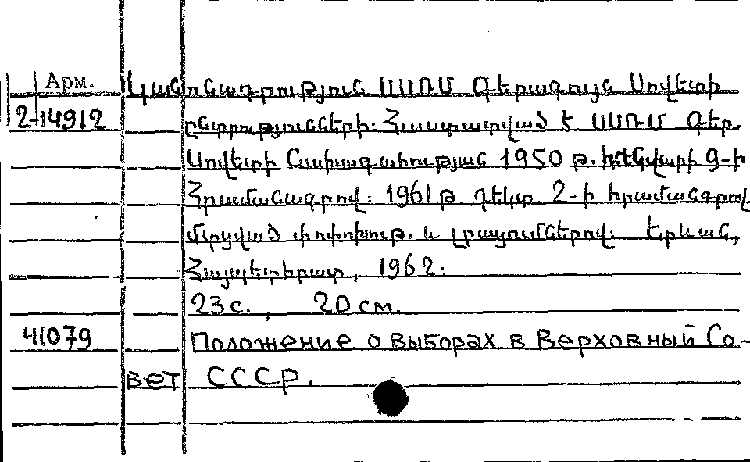 Арм. Կանոնադրություն ՍՍՌՄ Գերագույն Սովետի
2-14912 ընտրությունների: Հաստատված է ՍՍՌՄ Գեր.
Սովետի Նախագահության 1950 թ. հունվարի 9-ի
Հրամանագրով: 1961 թ. դեկտ. 2-ի հրամանագրով
մտցված փոփոխութ. և լրացումներով. Երևան,
Հայպետհրատ, 1962:
23 с., 20 см.
41079 Положение о выборах в Верховный Со-
вет СССР.